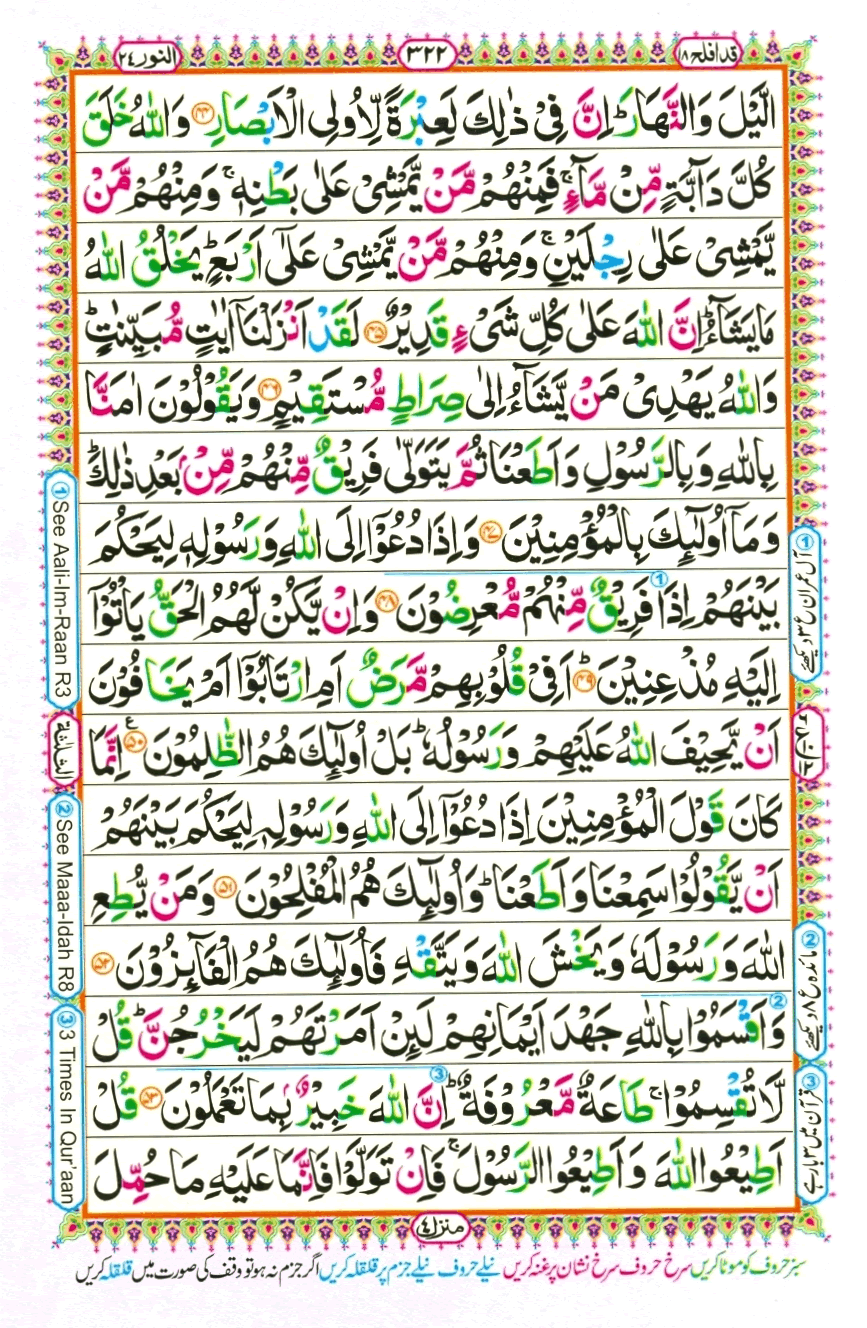 قد افلح ١٨
٣٢٢
النور ٢٤
الَّيْلَ وَالنَّهَارَ ؕ اِنَّ فِىْ ذٰلِكَ لَعِبْرَةً لِّاُولِى الْاَبْصَارِ ﴿۴۴﴾ وَاللّٰهُ خَلَقَ
كُلَّ دَآبَّةٍ مِّنْ مَّآءٍ ۚ فَمِنْهُمْ مَّنْ يَّمْشِىْ عَلٰى بَطْنِهٖ ۚ وَمِنْهُمْ مَّنْ
يَّمْشِىْ عَلٰى رِجْلَيْنِ ۚ وَمِنْهُمْ مَّنْ يَّمْشِىْ عَلٰٓى اَرْبَعٍ ؕ يَخْلُقُ اللّٰهُ
مَا يَشَآءُ ؕ اِنَّ اللّٰهَ عَلٰى كُلِّ شَىْءٍ قَدِيْرٌ ﴿۴۵﴾ لَقَدْ اَنْزَلْنَاۤ اٰيٰتٍ مُّبَيِّنٰتٍ ؕ
وَاللّٰهُ يَهْدِىْ مَنْ يَّشَآءُ اِلٰى صِرَاطٍ مُّسْتَقِيْمٍ ﴿۴۶﴾ وَيَقُوْلُوْنَ اٰمَنَّا
بِاللّٰهِ وَبِالرَّسُوْلِ وَاَطَعْنَا ثُمَّ يَتَوَلّٰى فَرِيْقٌ مِّنْهُمْ مِّنْۢ بَعْدِ ذٰلِكَ ؕ
وَمَاۤ اُولٰٓئِكَ بِالْمُؤْمِنِيْنَ ﴿۴۷﴾ وَاِذَا دُعُوْۤا اِلَى اللّٰهِ وَرَسُوْلِهٖ لِيَحْكُمَ
بَيْنَهُمْ اِذَا فَرِيْقٌ مِّنْهُمْ مُّعْرِضُوْنَ ﴿۴۸﴾ وَاِنْ يَّكُنْ لَّهُمُ الْحَقُّ يَاْتُوْۤا
اِلَيْهِ مُذْعِنِيْنَ ﴿۴۹﴾ ؕ اَفِىْ قُلُوْبِهِمْ مَّرَضٌ اَمِ ارْتَابُوْۤا اَمْ يَخَافُوْنَ
اَنْ يَّحِيْفَ اللّٰهُ عَلَيْهِمْ وَرَسُوْلُهٗ ؕ بَلْ اُولٰٓئِكَ هُمُ الظّٰلِمُوْنَ ﴿۵۰﴾ ع اِنَّمَا
كَانَ قَوْلَ الْمُؤْمِنِيْنَ اِذَا دُعُوْۤا اِلَى اللّٰهِ وَرَسُوْلِهٖ لِيَحْكُمَ بَيْنَهُمْ
اَنْ يَّقُوْلُوْا سَمِعْنَا وَاَطَعْنَا ؕ وَاُولٰٓئِكَ هُمُ الْمُفْلِحُوْنَ ﴿۵۱﴾ وَمَنْ يُّطِعِ
اللّٰهَ وَرَسُوْلَهٗ وَيَخْشَ اللّٰهَ وَيَتَّقْهِ فَاُولٰٓئِكَ هُمُ الْفَآئِزُوْنَ ﴿۵۲﴾
وَاَقْسَمُوْا بِاللّٰهِ جَهْدَ اَيْمَانِهِمْ لَئِنْ اَمَرْتَهُمْ لَيَخْرُجُنَّ ؕ قُلْ
لَّا تُقْسِمُوْا ۚ طَاعَةٌ مَّعْرُوْفَةٌ ؕ اِنَّ اللّٰهَ خَبِيْرٌۢ بِمَا تَعْمَلُوْنَ ﴿۵۳﴾ قُلْ
اَطِيْعُوا اللّٰهَ وَاَطِيْعُوا الرَّسُوْلَ ۚ فَاِنْ تَوَلَّوْا فَاِنَّمَا عَلَيْهِ مَا حُمِّلَ
① آل عمران ع ٣ دیکھئے
② مائدہ ع ٨ دیکھئے
③ قرآن میں ٣ بار ہے
① See Aali-Im-Raan R3
الثلثة
② See Maaa-Idah R8
③ 3 Times In Qur'aan
منزل ٤
سبز حروف کو موٹا کریں سرخ حروف سرخ نشان پر غنہ کریں نیلے حروف نیلے جزم پر قلقلہ کریں اگر جزم نہ ہو تو وقف کی صورت میں قلقلہ کریں